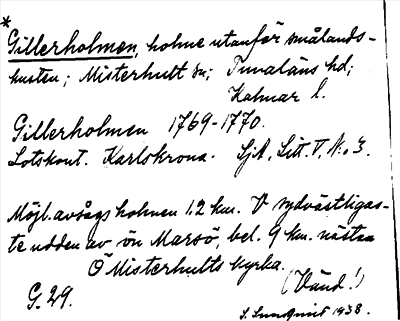 *
Gillerholmen, holme utanför smålands-
kusten; Misterhult sn; Tunaläns hd;
Kalmar l.
Gillerholmen 1769-1770.
Lotskont. Karlskrona. SjA, Litt. V, N:o 3.
Möjl. avsågs holmen 1.2 km. V sydvästligas-
te udden av ön Marsö, bel. 9 km. nästan
Ö Misterhults kyrka.
(Vänd!)
G. 29.
S. Sundqvist 1938.